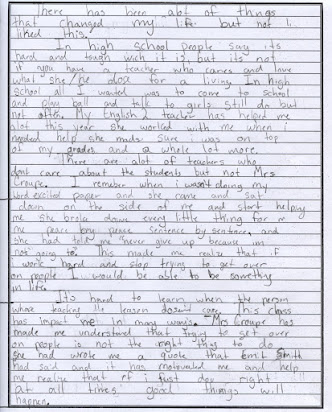 There has been alot of things
that changed my life but not I
liked this.
In high school people say its
hard and tough wich it is, but its not
if you have a teacher who cares and love
what she/he does for a living. In high
school all I wanted was to come to school
and play ball and talk to girls still do but
not often. My English 2 teacher has helped me
alot this year she worked with me when i
needed help she made sure i was on top
of my grades and a whole lot more.
There are alot of teachers who
dont care about the students but not Mrs
Croupe. I remember when i wasn't doing my
word excited paper and she came and sat
down on the side of me and start helping
me she broke down every little thing for
me peace by peace sentence by sentence. and
she had told me "never give up because im
not going to." This made me realize that if
I work hard and stop trying to get over
on people I would be able to be something
in life.
It's hard to learn when the person
whose teaching the leason doesn't care. This class
has impact me in many ways. Mrs Croupe has
made me understand that trying to get over
on people is not the right thing to do
she had wrote me a quote that Smith
had said and it has motivated me and help
me realize that if i just do right
at all times good things will
happen.